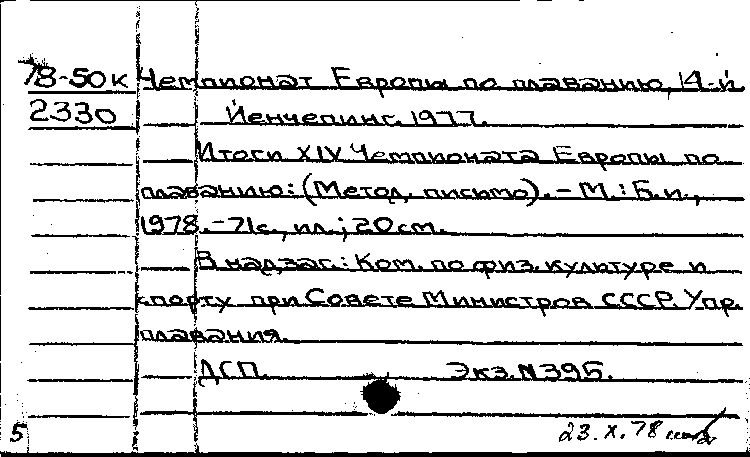 78-50к Чемпионат Европы по плаванию, 14-й.
2330 Йенчепинг. 1977.
Итоги XIV Чемпионата Европы по
плаванию: (Метод. письмо). - М.: Б.и.,
1978. - 71с., ил.; 20 см.
В надзаг.: Ком. по физ. культуре и
спорту при Совете Министров СССР. Упр.
плавания.
ДСП. Экз. N 395.
5 23.X.78